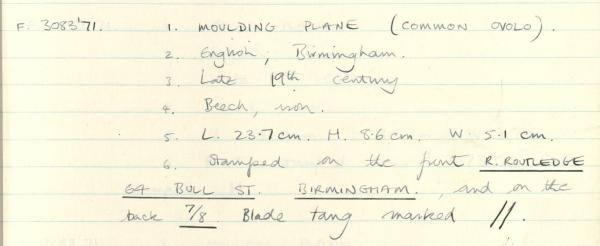 F. 3083'71. 1. MOULDING PLANE (COMMON OVOLO).
2. English, Birmingham.
3. Late 19th Century
4. Beech, iron.
5. L. 23.7cm. H. 8.6cm. W. 5.1 cm.
6. Stamped on the front R. ROUTLEDGE
64 BULL ST. BIRMINGHAM, and on the
back 7/8. Blade tang marked //.